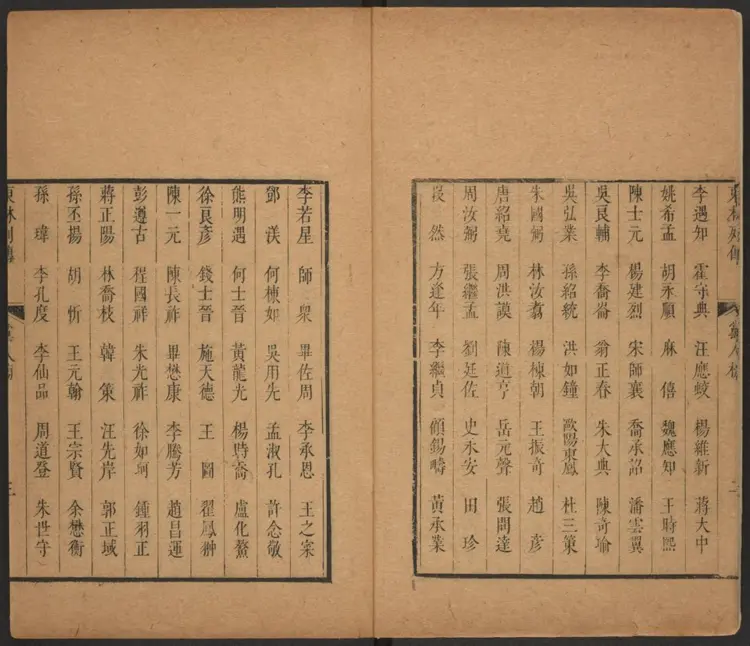 李遇知 霍守典 汪應蛟 楊維新 蔣大中
姚希孟 胡永順 麻僖 魏應知 王時熙
陳士元 楊建烈 宋師襄 喬承詔 潘雲翼
吳良輔 李喬崙 翁正春 朱大典 陳奇瑜
吳弘業 孫紹統 洪如鐘 歐陽東鳳 杜三策
朱國弼 林汝翥 楊棟朝 王振奇 趙彥
唐紹堯 周洪謨 陳道亨 岳元聲 張問達
周汝弼 張繼孟 劉廷佐 史永安 田珍
然 方逢年 李繼貞 顧錫疇 黃承業
李若星 師眾 畢佐周 李承恩 王之寀
鄧渼 何棟如 吳用先 孟淑孔 許念敬
熊明遇 何士晉 黃龍光 楊時喬 盧化鰲
徐良彥 錢士晉 施天德 王圖 翟鳳翀
陳一元 陳長祚 畢懋康 李騰芳 趙昌運
彭遵古 程國祥 朱光祚 徐如珂 鍾羽正
蔣正陽 林喬枝 韓策 汪先岸 郭正域
孫丕揚 胡忻 王元翰 王宗賢 余懋衡
孫瑋 李孔度 李仙品 周道登 朱世守